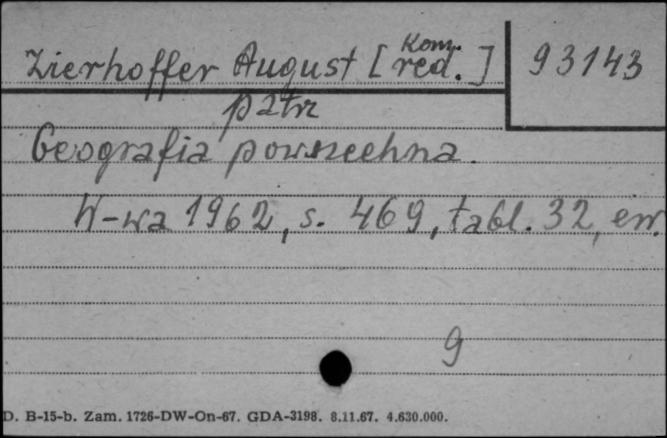 Zierhoffer August [Kom. red.] 93143
patrz
Geografia powszechna.
W-wa 1962, s. 469, tabl. 32, err.
9
D. B-15-b. Zam. 1726-DW-On-67. GDA-3198. 8.11.67. 4.630.000.